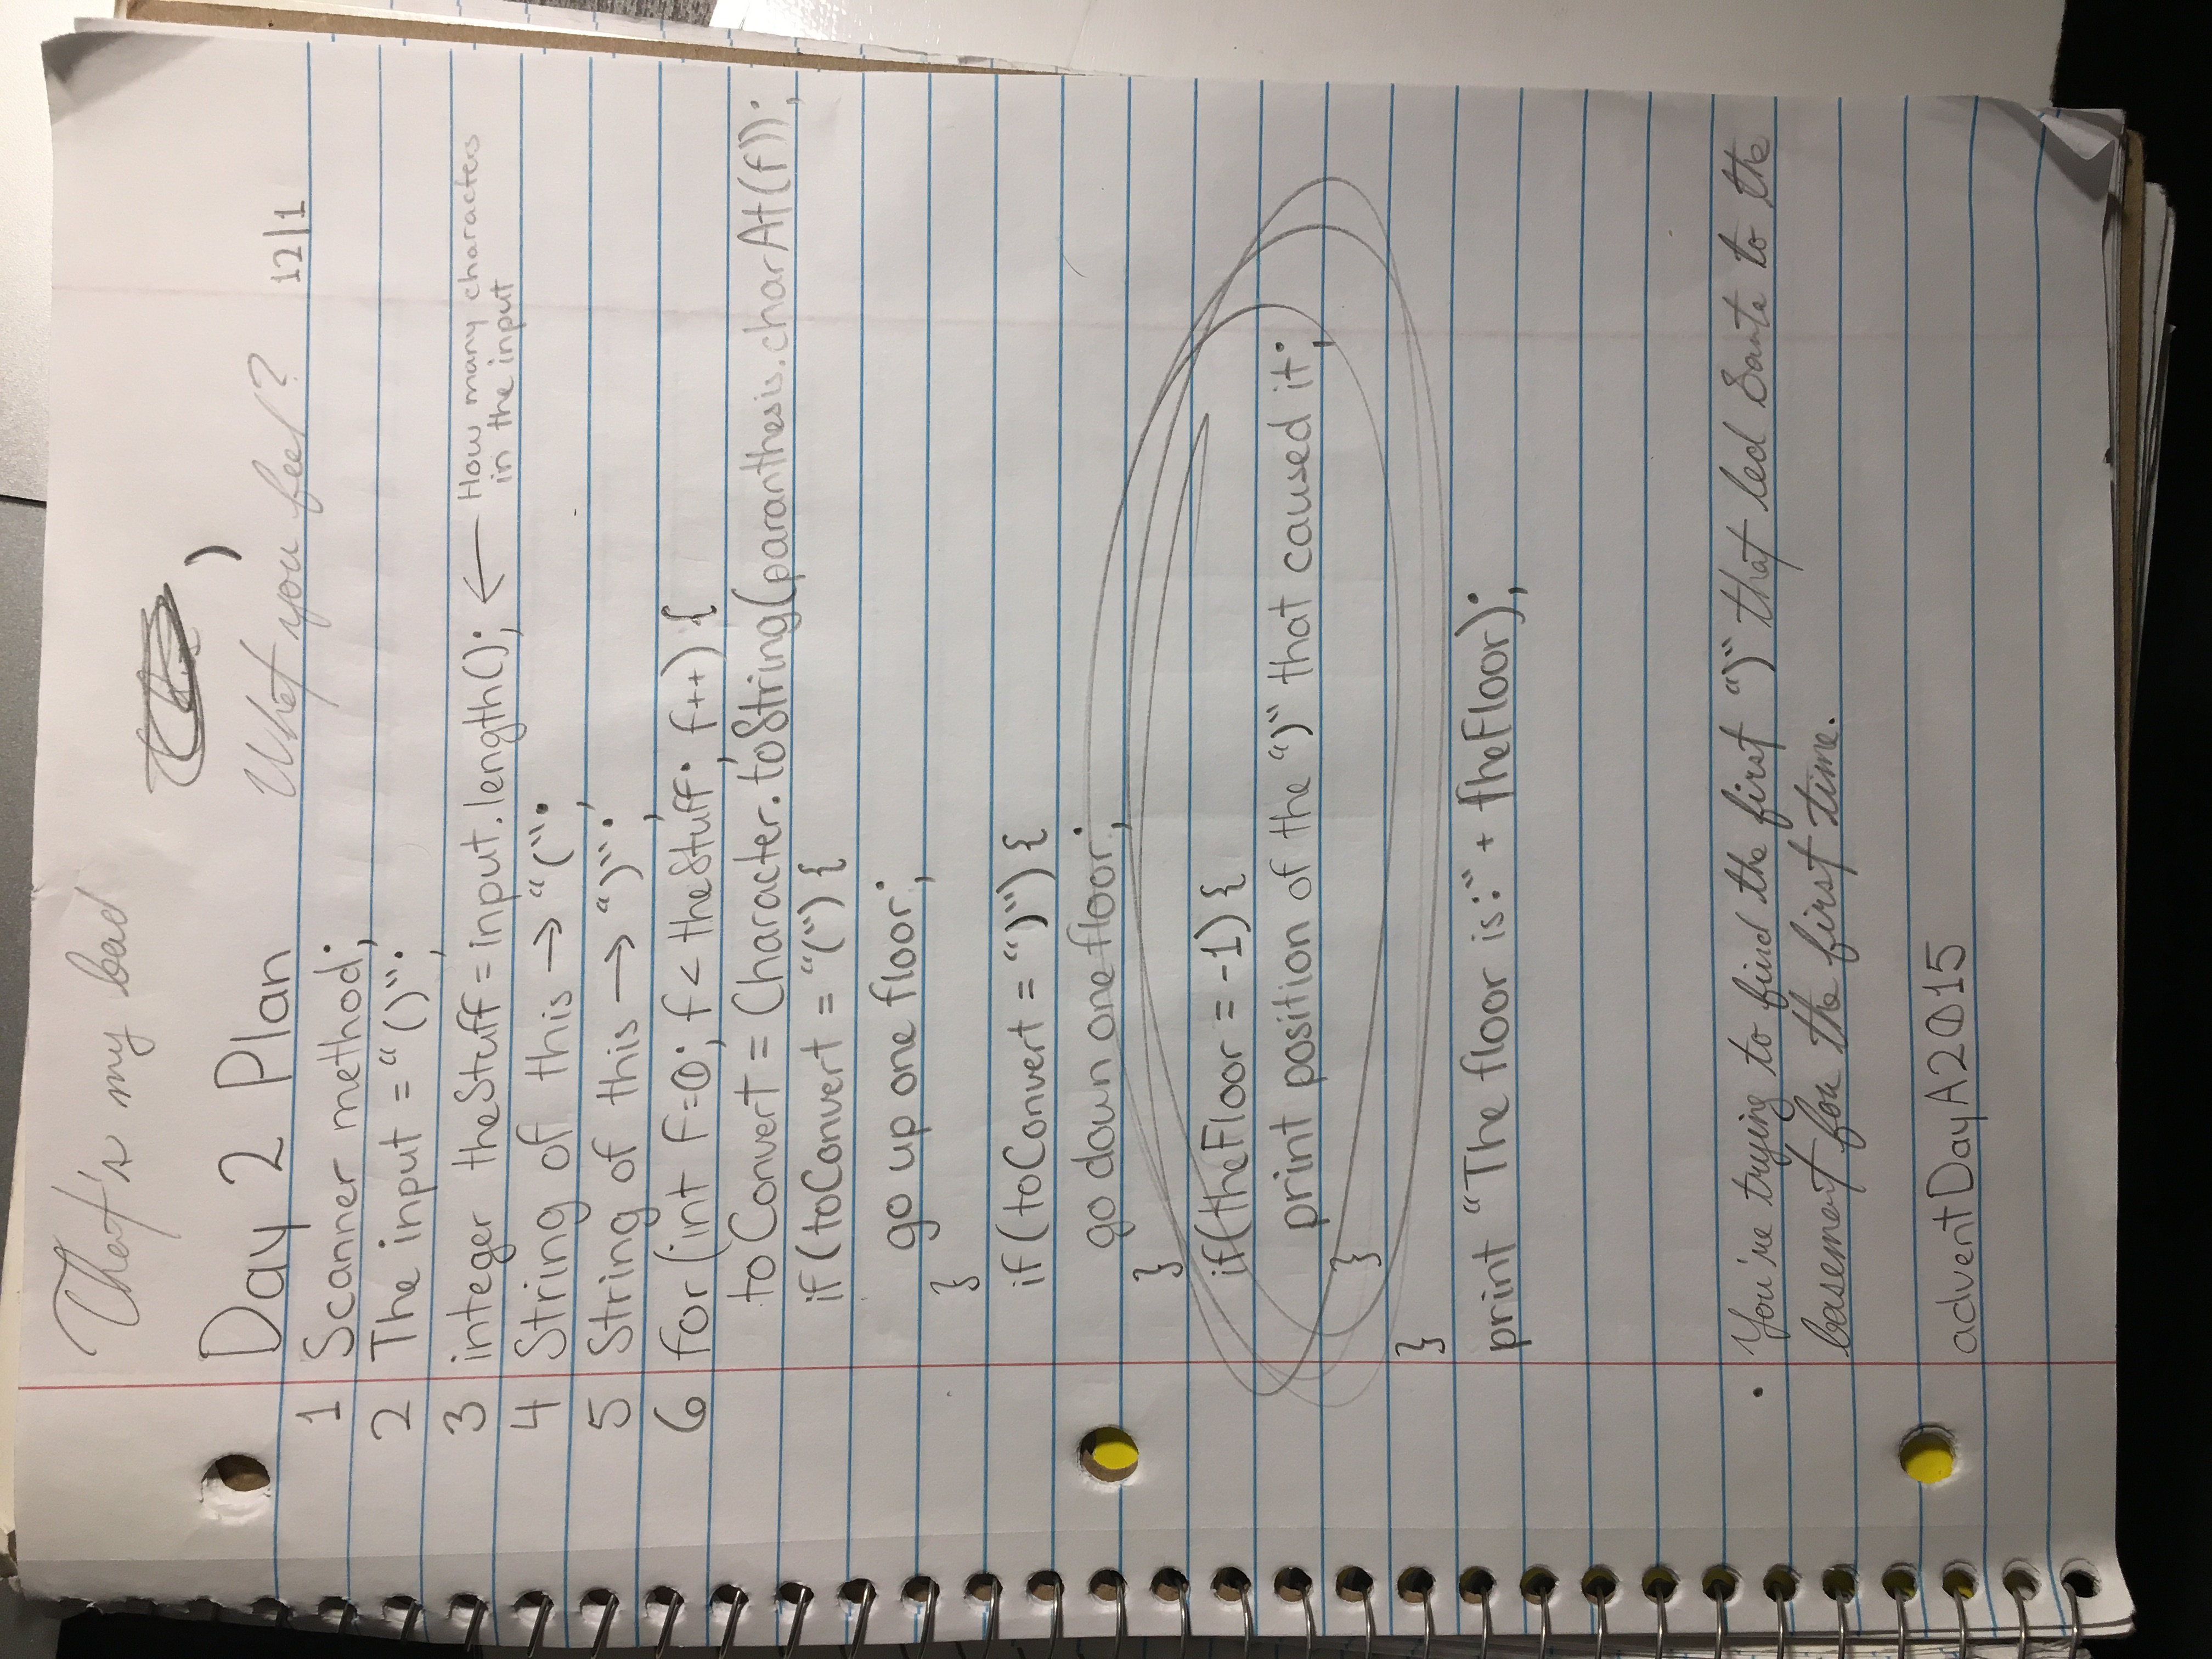 That's my bad
Day 2 Plan
What you feel?
12/1
1 Scanner method;
2 The input = "()";
3 integer theStuff = input.length(); ← How many characters
in the input
4 String of this → "(";
5 String of this → ")";
6 for (int f=0; f < theStuff; f++) {
toConvert = Character.toString(paranthesis.charAt(f));
if (toConvert = "(") {
go up one floor;
}
if (toConvert = ")") {
go down one floor;
}
if(theFloor = -1) {
print position of the ")" that caused it;
}
}
print "The floor is:" + theFloor);
• You're trying to find the first ")" that led Santa to the
basement for the first time.
adventDayA2015